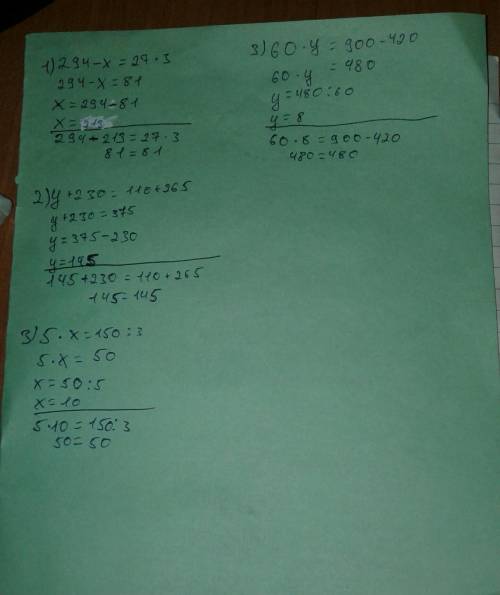 1) 294 - x = 27 · 3
294 - x = 81
x = 294 - 81
x = 213
294 - 213 = 27 · 3
81 = 81
2) y + 230 = 110 + 265
y + 230 = 375
y = 375 - 230
y = 145
145 + 230 = 110 + 265
145 = 145
3) 5 · x = 150 : 3
5 · x = 50
x = 50 : 5
x = 10
5 · 10 = 150 : 3
50 = 50
3) 60 · y = 900 - 420
60 · y = 480
y = 480 : 60
y = 8
60 · 8 = 900 - 420
480 = 480